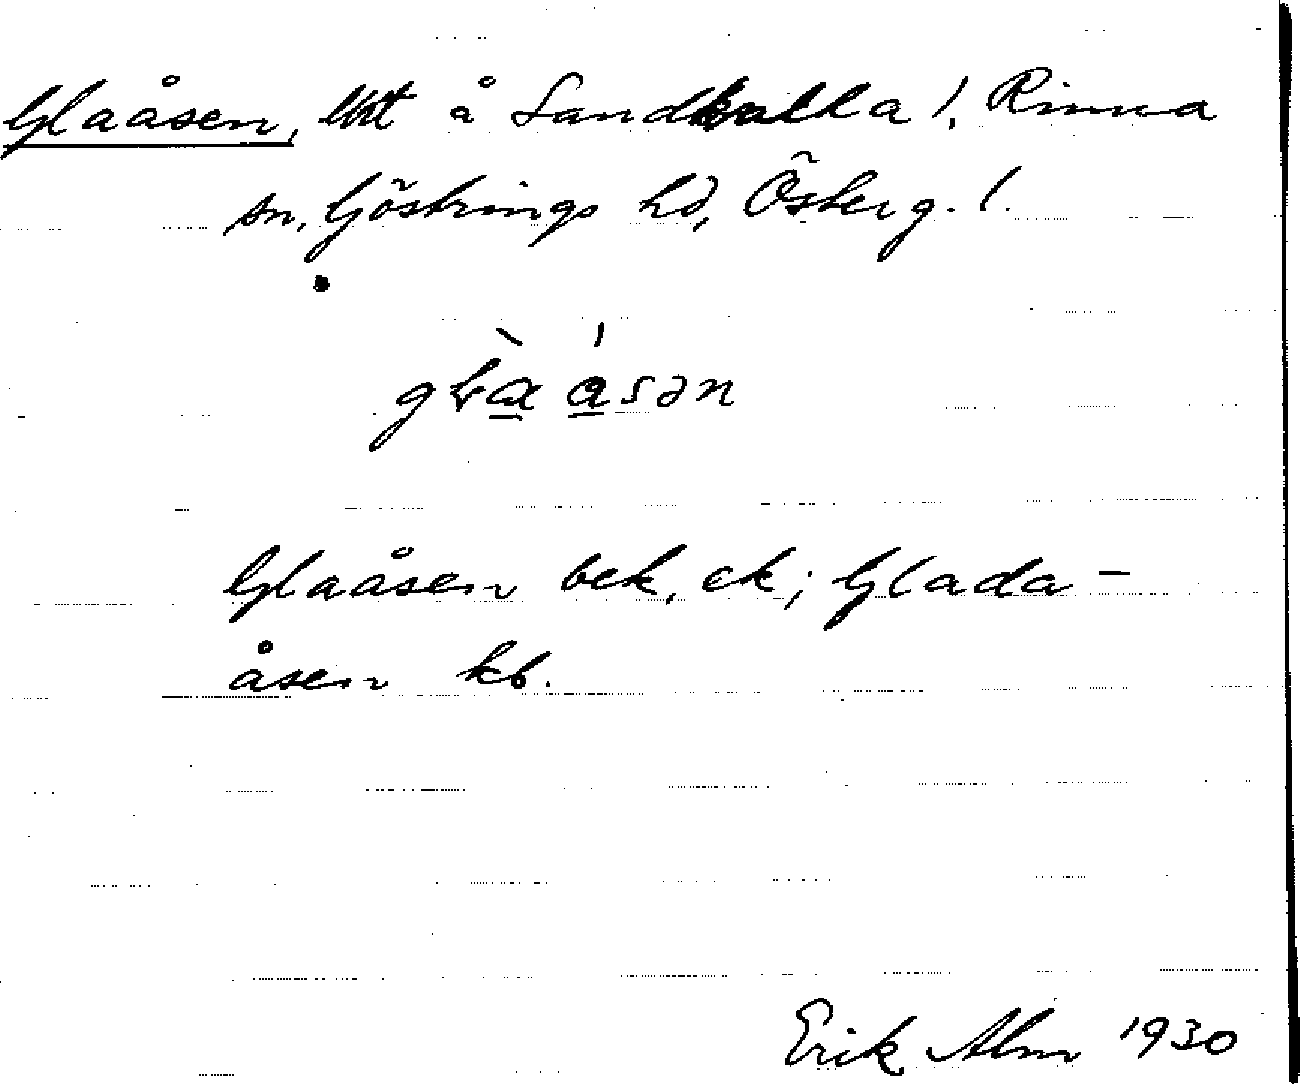 Glaåsen, lht å Sandkulla /, Rinna
sn, Göstrings hd, Österg. l.
Glaåsen bek. ek; Glada-
åsen kb.
Erik Alm 1930